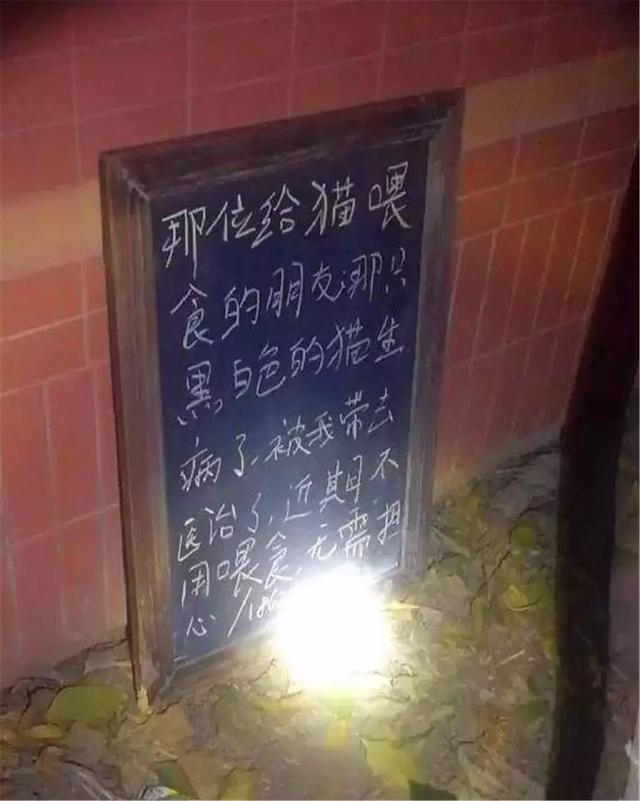 那位给猫喂
食的朋友:那只
黑白色的猫生
病了,被我带去
医治了,近期不
用喂食,无需担
心/186